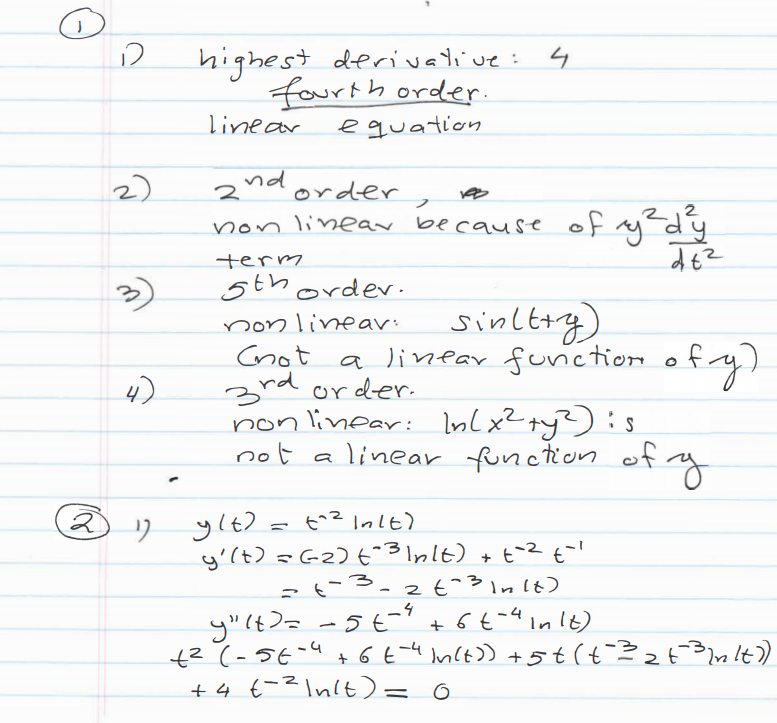 ①
1) highest derivative: 4
fourth order.
linear equation
2) 2nd order,
nonlinear because of y²d²y/dt²
term
3) 5th order.
nonlinear: sin(t+y)
(not a linear function of y)
4) 3rd order.
nonlinear: ln(x²+y²) is
not a linear function of y
② 1) y(t) = t⁻² ln(t)
y'(t) = (-2) t⁻³ ln(t) + t⁻² t⁻¹
= t⁻³ - 2 t⁻³ ln(t)
y''(t) = -5 t⁻⁴ + 6 t⁻⁴ ln(t)
t² (-5t⁻⁴ + 6 t⁻⁴ ln(t)) + 5t (t⁻³ - 2 t⁻³ ln(t))
+ 4 t⁻² ln(t) = 0